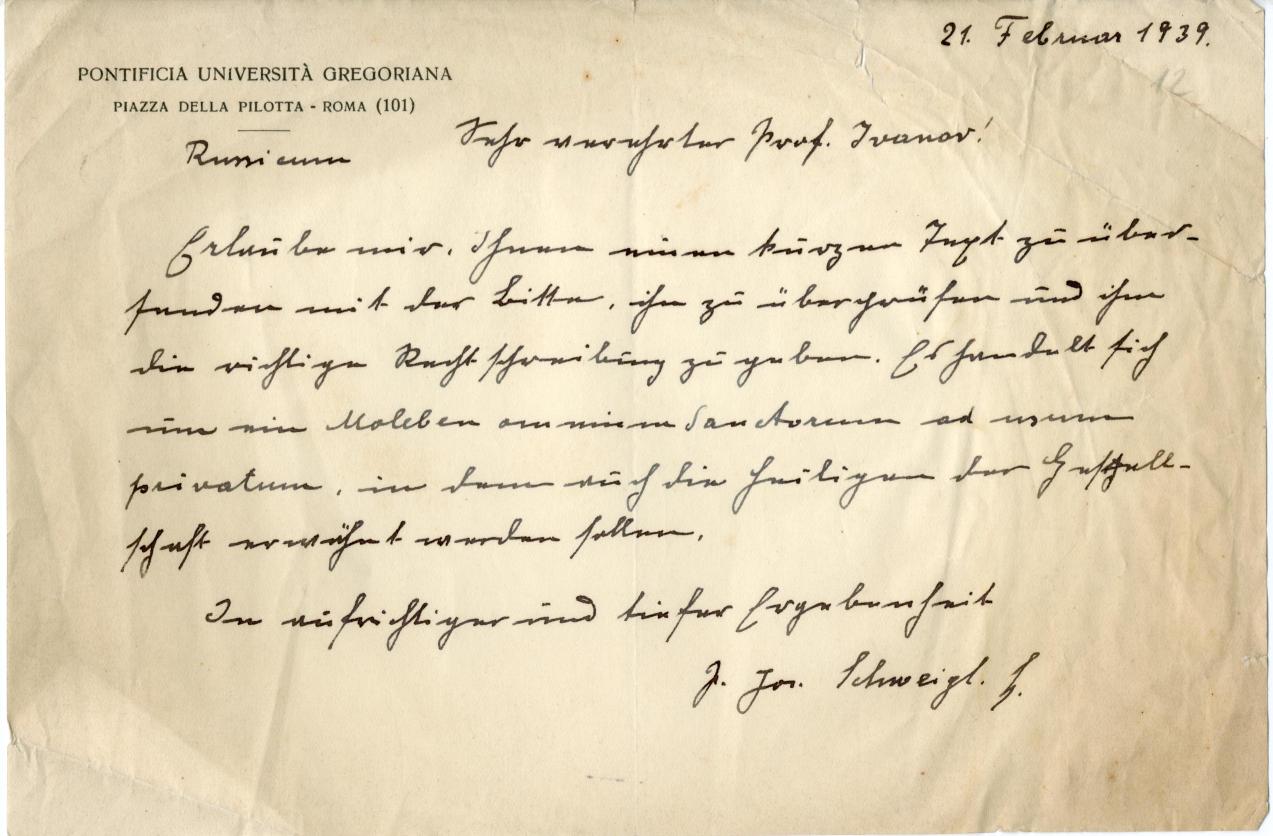 21. Februar 1939.
12
PONTIFICIA UNIVERSITÀ GREGORIANA
PIAZZA DELLA PILOTTA - ROMA (101)
Russicum
Sehr verehrter Prof. Ivanov!
Erlaube mir, Ihnen einen kurzen Text zu über-
senden mit der Bitte, ihn zu überprüfen und ihm
die richtige Rechtschreibung zu geben. Es handelt sich
um ein Moleben omnium Sanctorum ad usum
privatum, in dem auch die Heiligen der Gesell-
schaft erwähnt werden sollen.
In aufrichtiger und tiefer Ergebenheit
P. Jos. Schweigl. S.J.